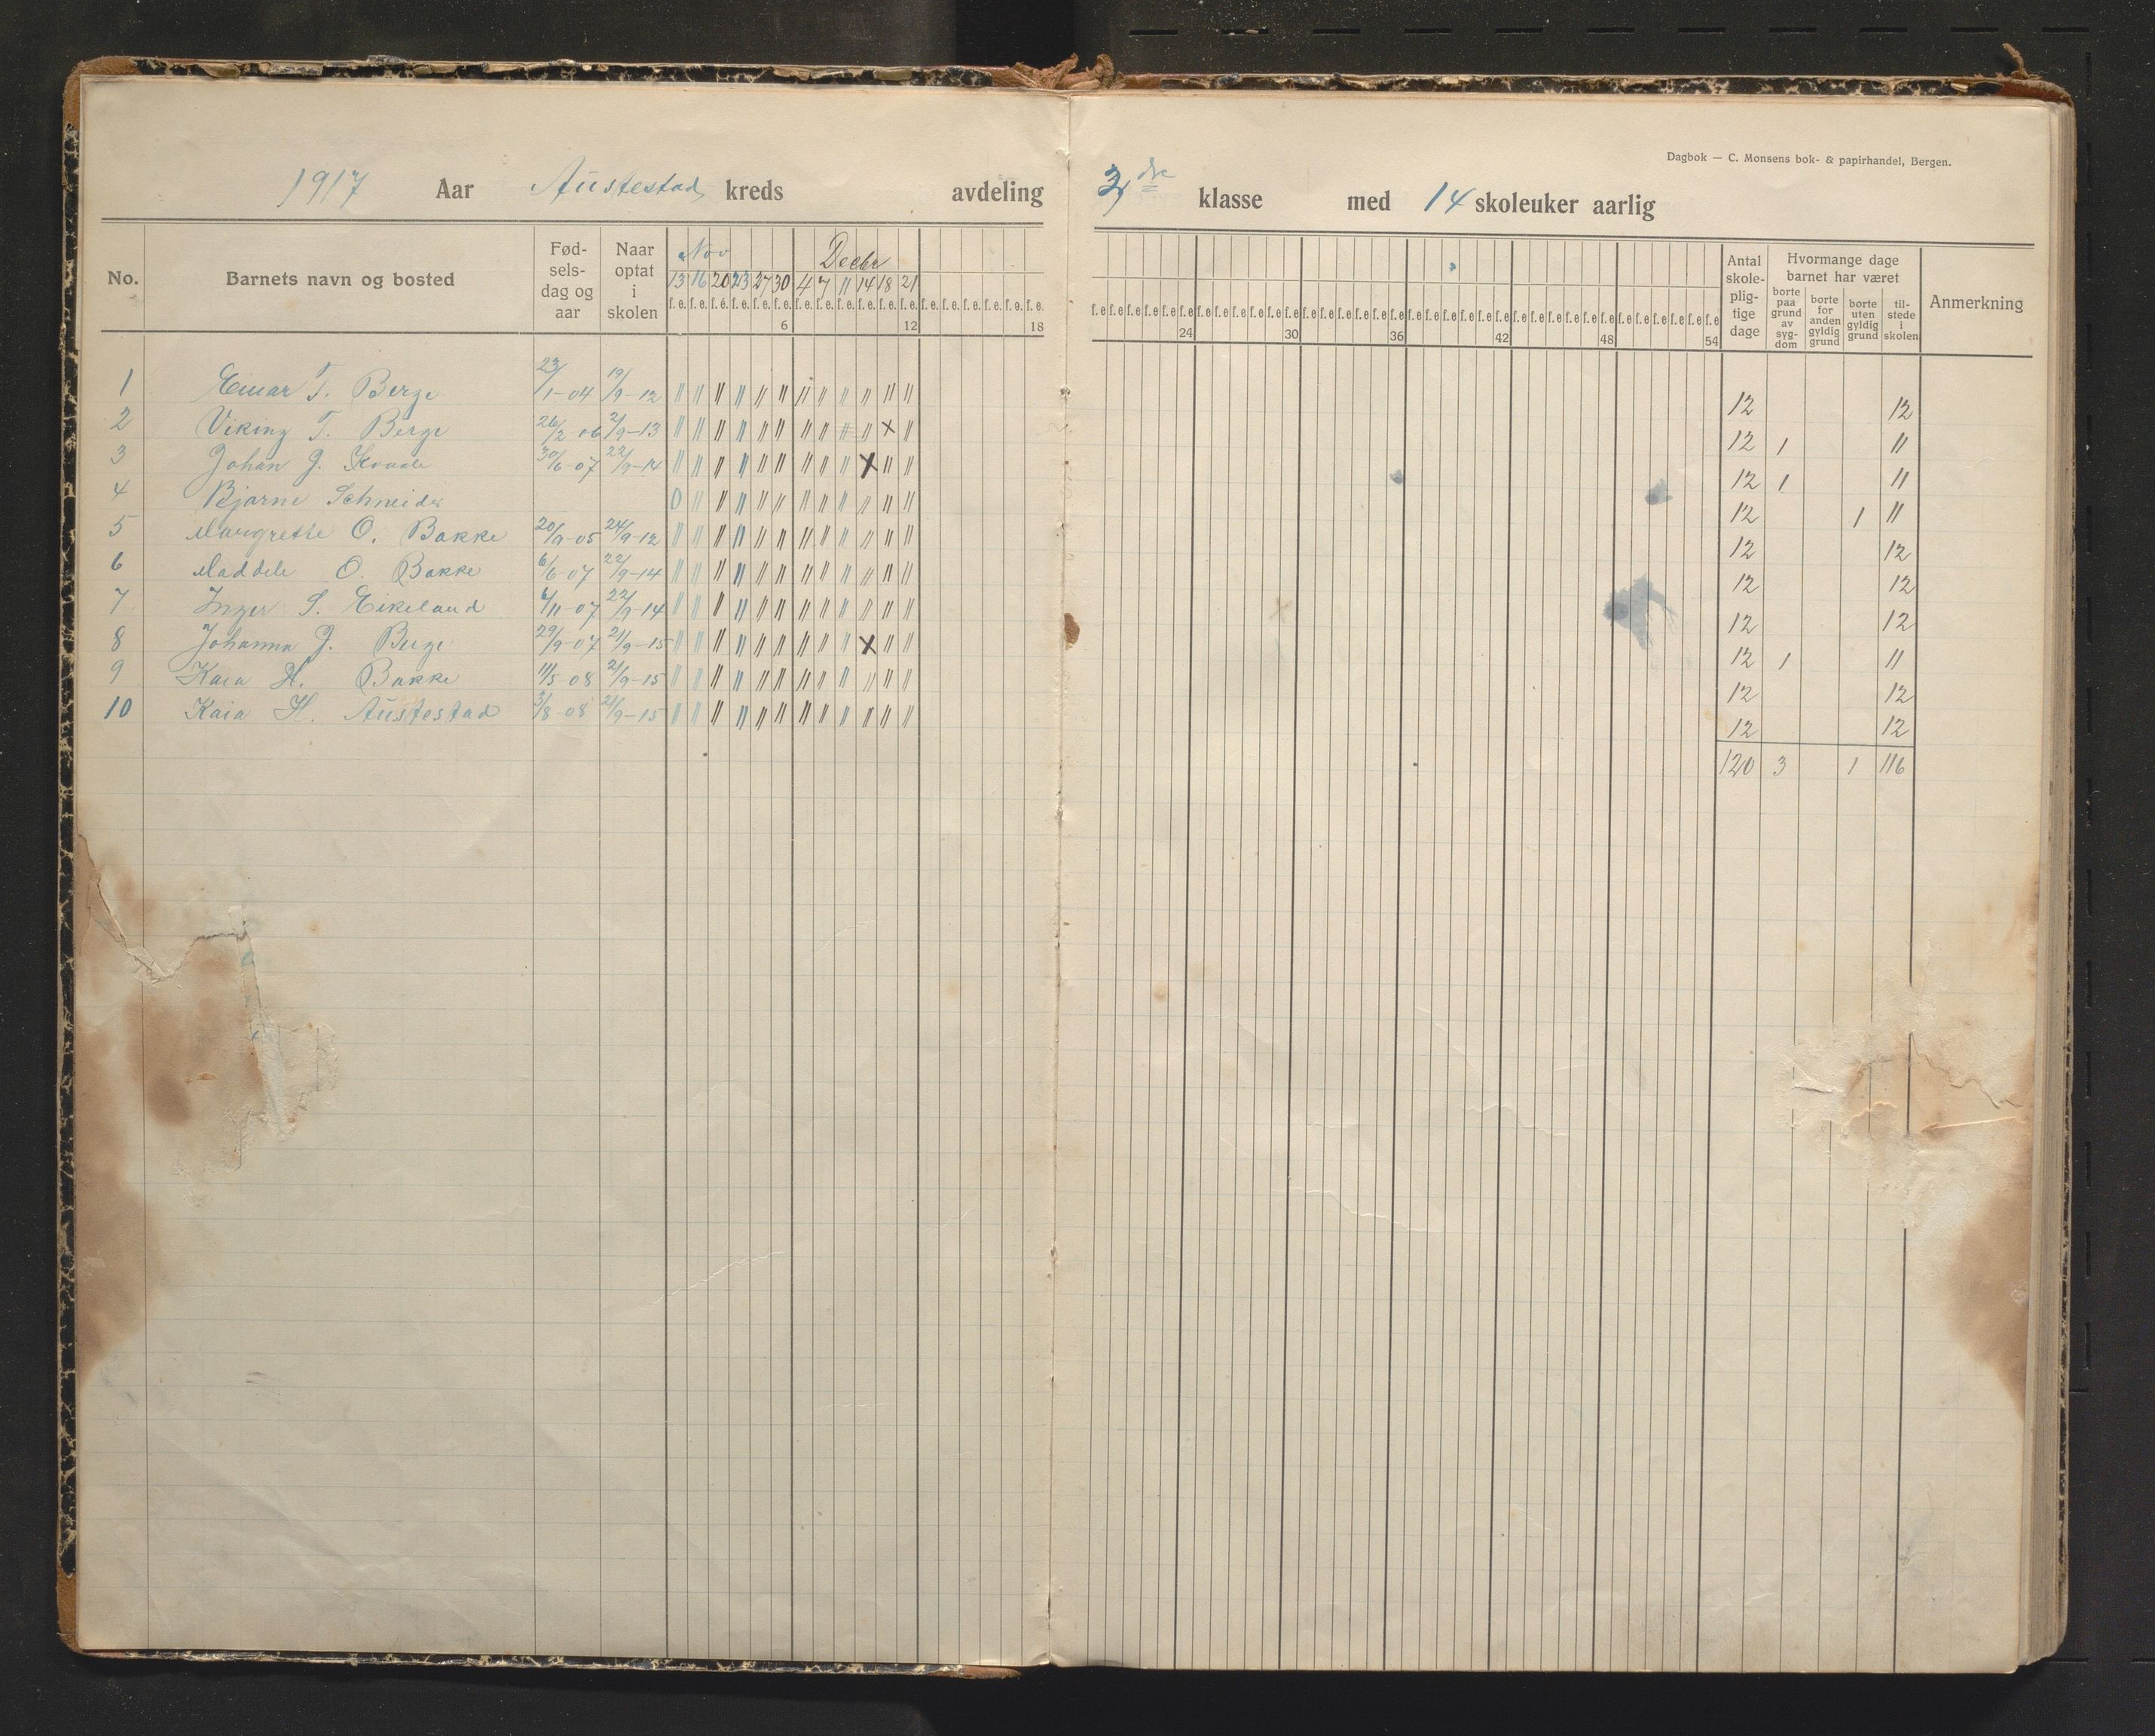 Dagbok — C. Monsens bok- & papirhandel, Bergen.
1917 Aar Austestad kreds avdeling klasse med 14 skoleuker aarlig
No. Barnets navn og bosted Fød-sels-dag og aar Naar optat i skolen Nov Decbr Antal skole-plig-tige dage Hvormange dage barnet har været Anmerkning
borte paa grund av syg-dom borte for anden gyldig grund borte uten gyldig grund til-stede i skolen
13 16 20 23 27 30 4 7 11 14 18 21
f.e. f.e. f.e. f.e. f.e. f.e. f.e. f.e. f.e. f.e. f.e. f.e. f.e. f.e. f.e. f.e. f.e. f.e.
6 12 18 24 30 36 42 48 54
1 Einar T. Berge 23/1-04 19/9-12 12 12
2 Viking T. Berge 26/2 06 2/9-13 12 1 11
3 Johan J. 30/6-07 22/9-14 12 1 11
4 Bjarne Schneider 12 1 11
5 Margrethe O. Bakke 20/9-05 24/9-12 12 12
6 O. Bakke 6/6-07 22/9-14 12 12
7 Inger S. Eikeland 6/11-07 22/9-14 12 12
8 Johanna J. Berge 29/9-07 21/9-15 12 1 11
9 Kaia H. Bakke 11/5 08 21/9-15 12 12
10 Kaia H. Austestad 3/8-08 21/9-15 12 12
120 3 1 116